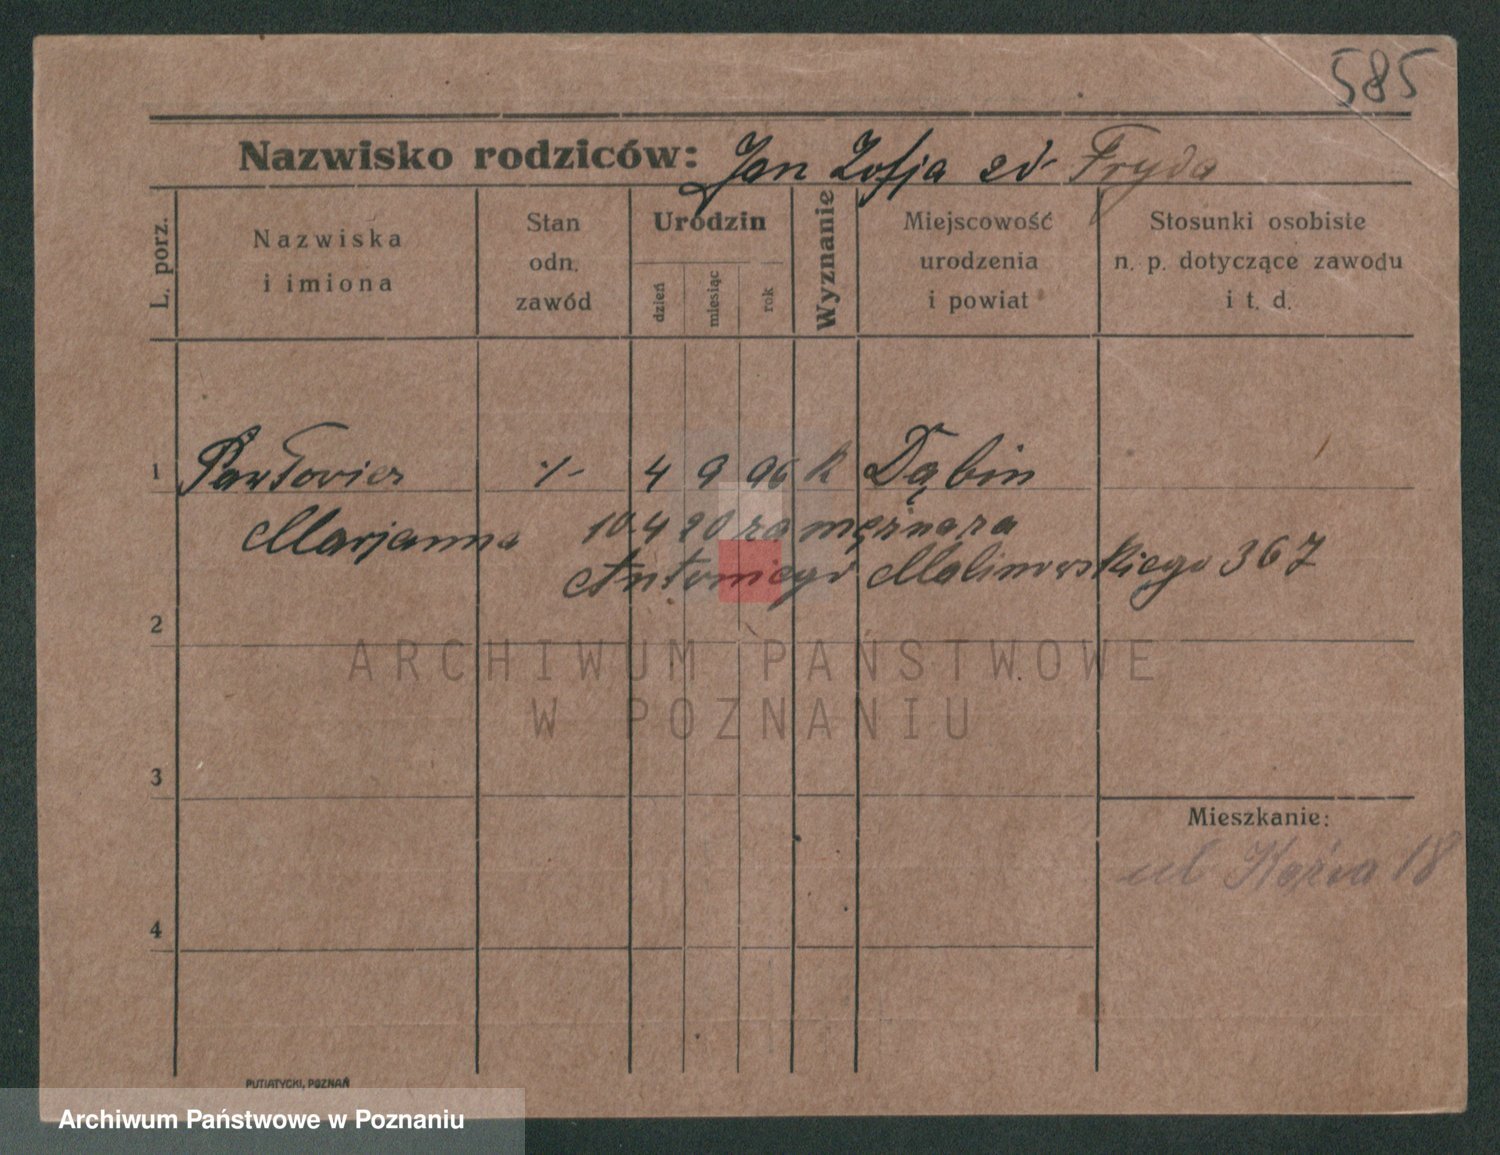 585
Nazwisko rodziców: Jan Zofja zd Fryda
L. porz.
Nazwiska
i imiona
Stan
odn.
zawód
Urodzin
dzień
miesiąc
rok
Wyznanie
Miejscowość
urodzenia
i powiat
Stosunki osobiste
n. p. dotyczące zawodu
i t. d.
1 Pawłowicz ·/- 4 9 96 k Dąbin
Marjanna 10.4 20 za męża za
Antoniego Malinowskiego 367
2
ARCHIWUM PAŃSTWOWE
W POZNANIU
3
Mieszkanie:
ul 18
4
PUTIATYCKI, POZNAŃ
Archiwum Państwowe w Poznaniu